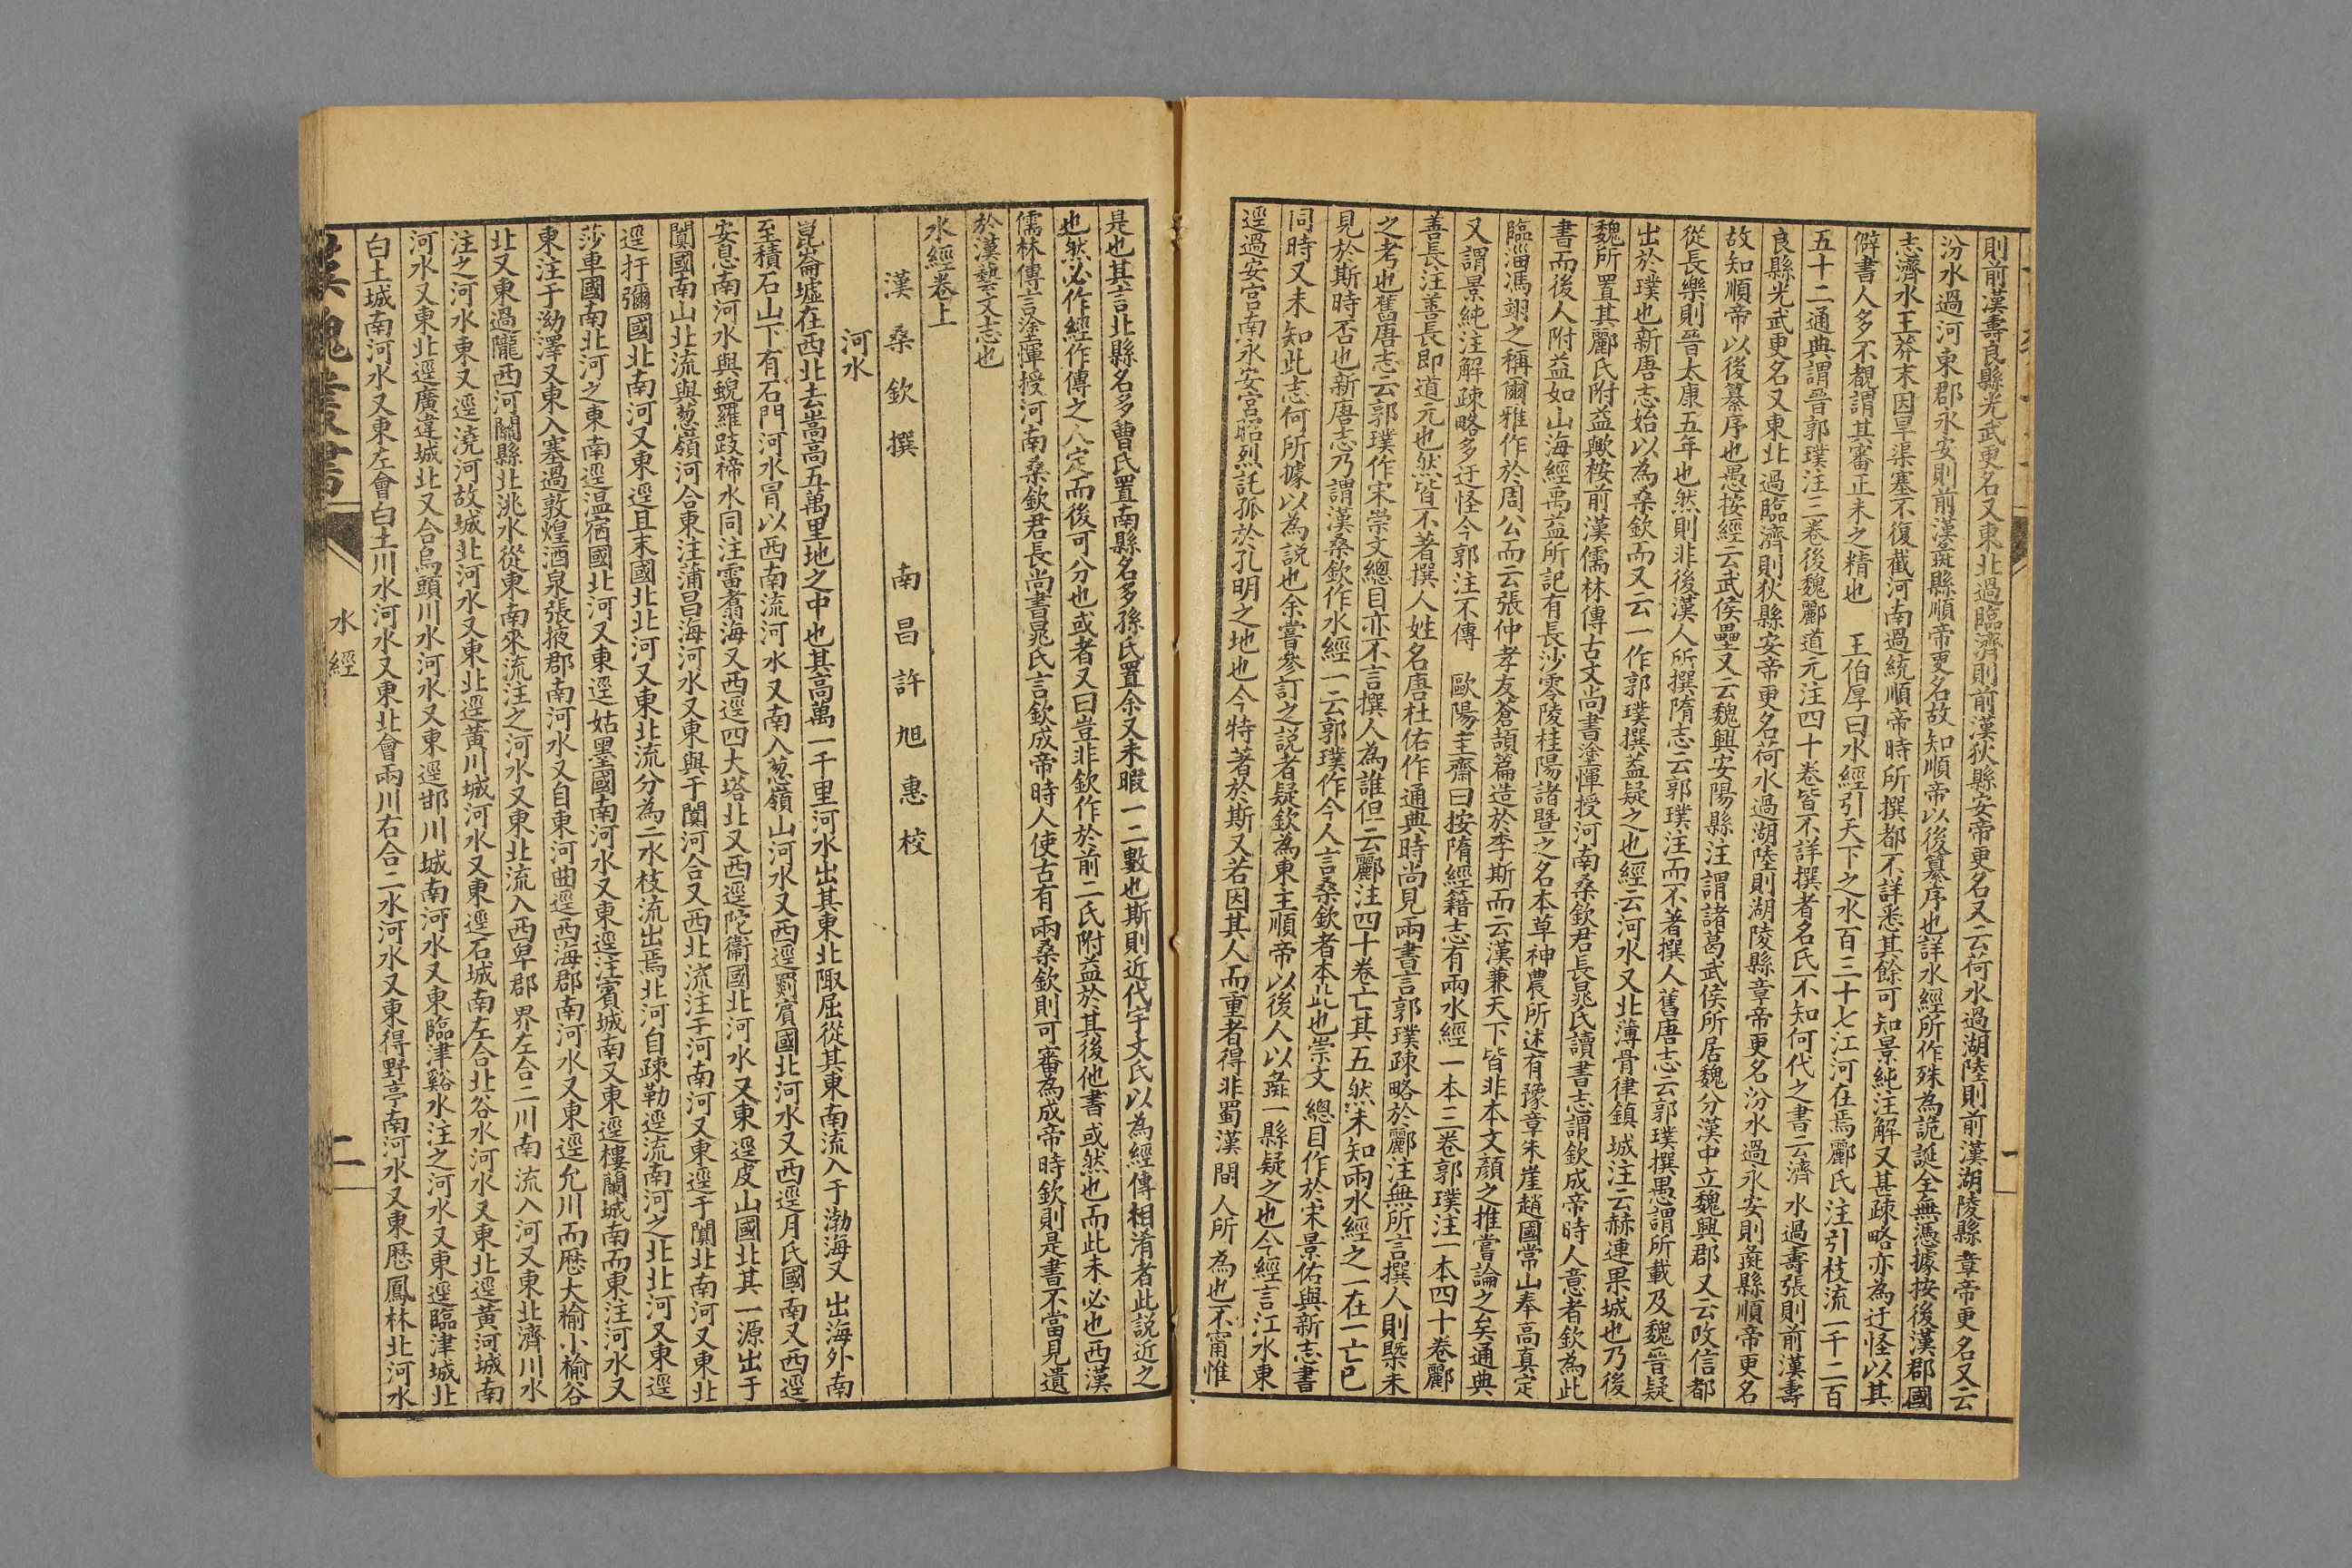 則前漢壽良縣光武更名又東北過臨濟則前漢狄縣安帝更名又云荷水過湖陸則前漢湖陵縣章帝更名又云
汾水過河東郡永安則前漢彘縣順帝更名故知順帝以後纂序也詳水經所作殊為詭誕全無憑據按後漢郡國
志濟水王莽末因旱渠塞不復截河南過統順帝時所撰都不詳悉其餘可知景純注解又甚疎略亦為迂怪以其
僻書人多不覩謂其審正未之精也　王伯厚曰水經引天下之水百三十七江河在焉酈氏注引枝流一千二百
五十二通典謂晉郭璞注三卷後魏酈道元注四十卷皆不詳撰者名氏不知何代之書云濟水過壽張則前漢壽
良縣光武更名又東北過臨濟則狄縣安帝更名荷水過湖陸則湖陵縣章帝更名汾水過永安則彘縣順帝更名
故知順帝以後纂序也愚按經云武侯壘又云魏興安陽縣注謂諸葛武侯所居魏分漢中立魏興郡又云改信都
從長樂則晉太康五年也然則非後漢人所撰隋志云郭璞注而不著撰人舊唐志云郭璞撰愚謂所載及魏晉疑
出於璞也新唐志始以為桑欽而又云一作郭璞撰蓋疑之也經云河水又北薄骨律鎮城注云赫連果城也乃後
魏所置其酈氏附益歟桉前漢儒林傳古文尚書塗惲授河南桑欽君長晁氏讀書志謂欽成帝時人意者欽為此
書而後人附益如山海經禹益所記有長沙零陵桂陽諸暨之名本草神農所述有豫章朱崖趙國常山奉高真定
臨淄馮翊之稱爾雅作於周公而云張仲孝友蒼頡篇造於李斯而云漢兼天下皆非本文顏之推嘗論之矣通典
又謂景純注解疎略多迂怪今郭注不傳　歐陽圭齋曰按隋經籍志有兩水經一本三卷郭璞注一本四十卷酈
善長注善長即道元也然皆不著撰人姓名唐杜佑作通典時尚見兩書言郭璞疎略於酈注無所言撰人則槩未
之考也舊唐志云郭璞作宋崇文總目亦不言撰人為誰但云酈注四十卷亡其五然未知兩水經之一在一亡已
見於斯時否也新唐志乃謂漢桑欽作水經一云郭璞作今人言桑欽者本此也崇文總目作於宋景佑與新志書
同時又未知此志何所據以為説也余嘗參訂之説者疑欽為東主順帝以後人以彘一縣疑之也今經言江水東
逕過安宮南永安宮昭烈託孤於孔明之地也今特著於斯又若因其人而重者得非蜀漢間人所為也不甯惟
是也其言北縣名多曹氏置南縣名多孫氏置余又未暇一二數也斯則近代宇文氏以為經傳相淆者此説近之
也然必作經作傳之人定而後可分也或者又曰豈非欽作於前二氏附益於其後他書或然也而此未必也西漢
儒林傳言塗惲授河南桑欽君長尚書晁氏言欽成帝時人使古有兩桑欽則可審為成帝時欽則是書不當見遺
於漢藝文志也
水經卷上
漢桑欽撰　南昌許旭惠校
河水
崑崙墟在西北去嵩高五萬里地之中也其高萬一千里河水出其東北陬屈從其東南流入于渤海又出海外南
至積石山下有石門河水冐以西南流河水又南入葱嶺山河水又西逕罽賓國北河水又西逕月氏國南又西逕
安息南河水與蜺羅跂禘水同注雷翥海又西逕四大塔北又西逕陀衞國北河水又東逕皮山國北其一源出于
闐國南山北流與葱嶺河合東注蒲昌海河水又東與于闐河合又西北流注于河南河又東逕于闐北南河又東北
逕扜彌國北南河又東逕且末國北北河又東北流分為二水枝流出焉北河自疎勒逕流南河之北北河又東逕
莎車國南北河之東南逕温宿國北河又東逕姑墨國南河水又東逕注賓城南又東逕樓蘭城南而東注河水又
東注于泑澤又東入塞過敦煌酒泉張掖郡南河水又自東河曲逕西海郡南河水又東逕允川而歴大榆小榆谷
北又東過隴西河關縣北洮水從東南來流注之河水又東北流入西卑郡界左合二川南流入河又東北濟川水
注之河水東又逕澆河故城北河水又東北逕黃川城河水又東逕石城南左合北谷水河水又東北逕黃河城南
河水又東北逕廣違城北又合烏頭川水河水又東逕邯川城南河水又東臨津谿水注之河水又東逕臨津城北
白土城南河水又東左會白土川水河水又東北會兩川右合二水河水又東得野亭南河水又東歴鳳林北河水
漢魏叢書　水經　二